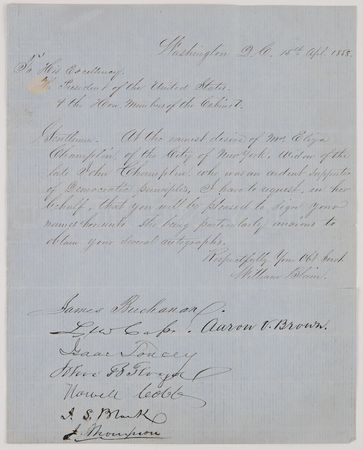 Washington D.C. 15th Apl. 1858.
To His Excellency,
The President of the United States
& the Hon. Members of the Cabinet.
Gentlemen. At the earnest desire of Mrs Eliza
Champlin, of the City of New York, widow of the
late John Champlin, who was an ardent supporter
of Democratic principles, I have to request, in her
behalf, that you will be pleased to sign your
names hereunto, she being particularly anxious to
obtain your several autographs.
Respectfully Your Obt Servt
William
James Buchanan.
Lew Cass. Aaron V. Brown.
Isaac Toucey
John B Floyd
Howell Cobb
J. S. Black
J. Thompson